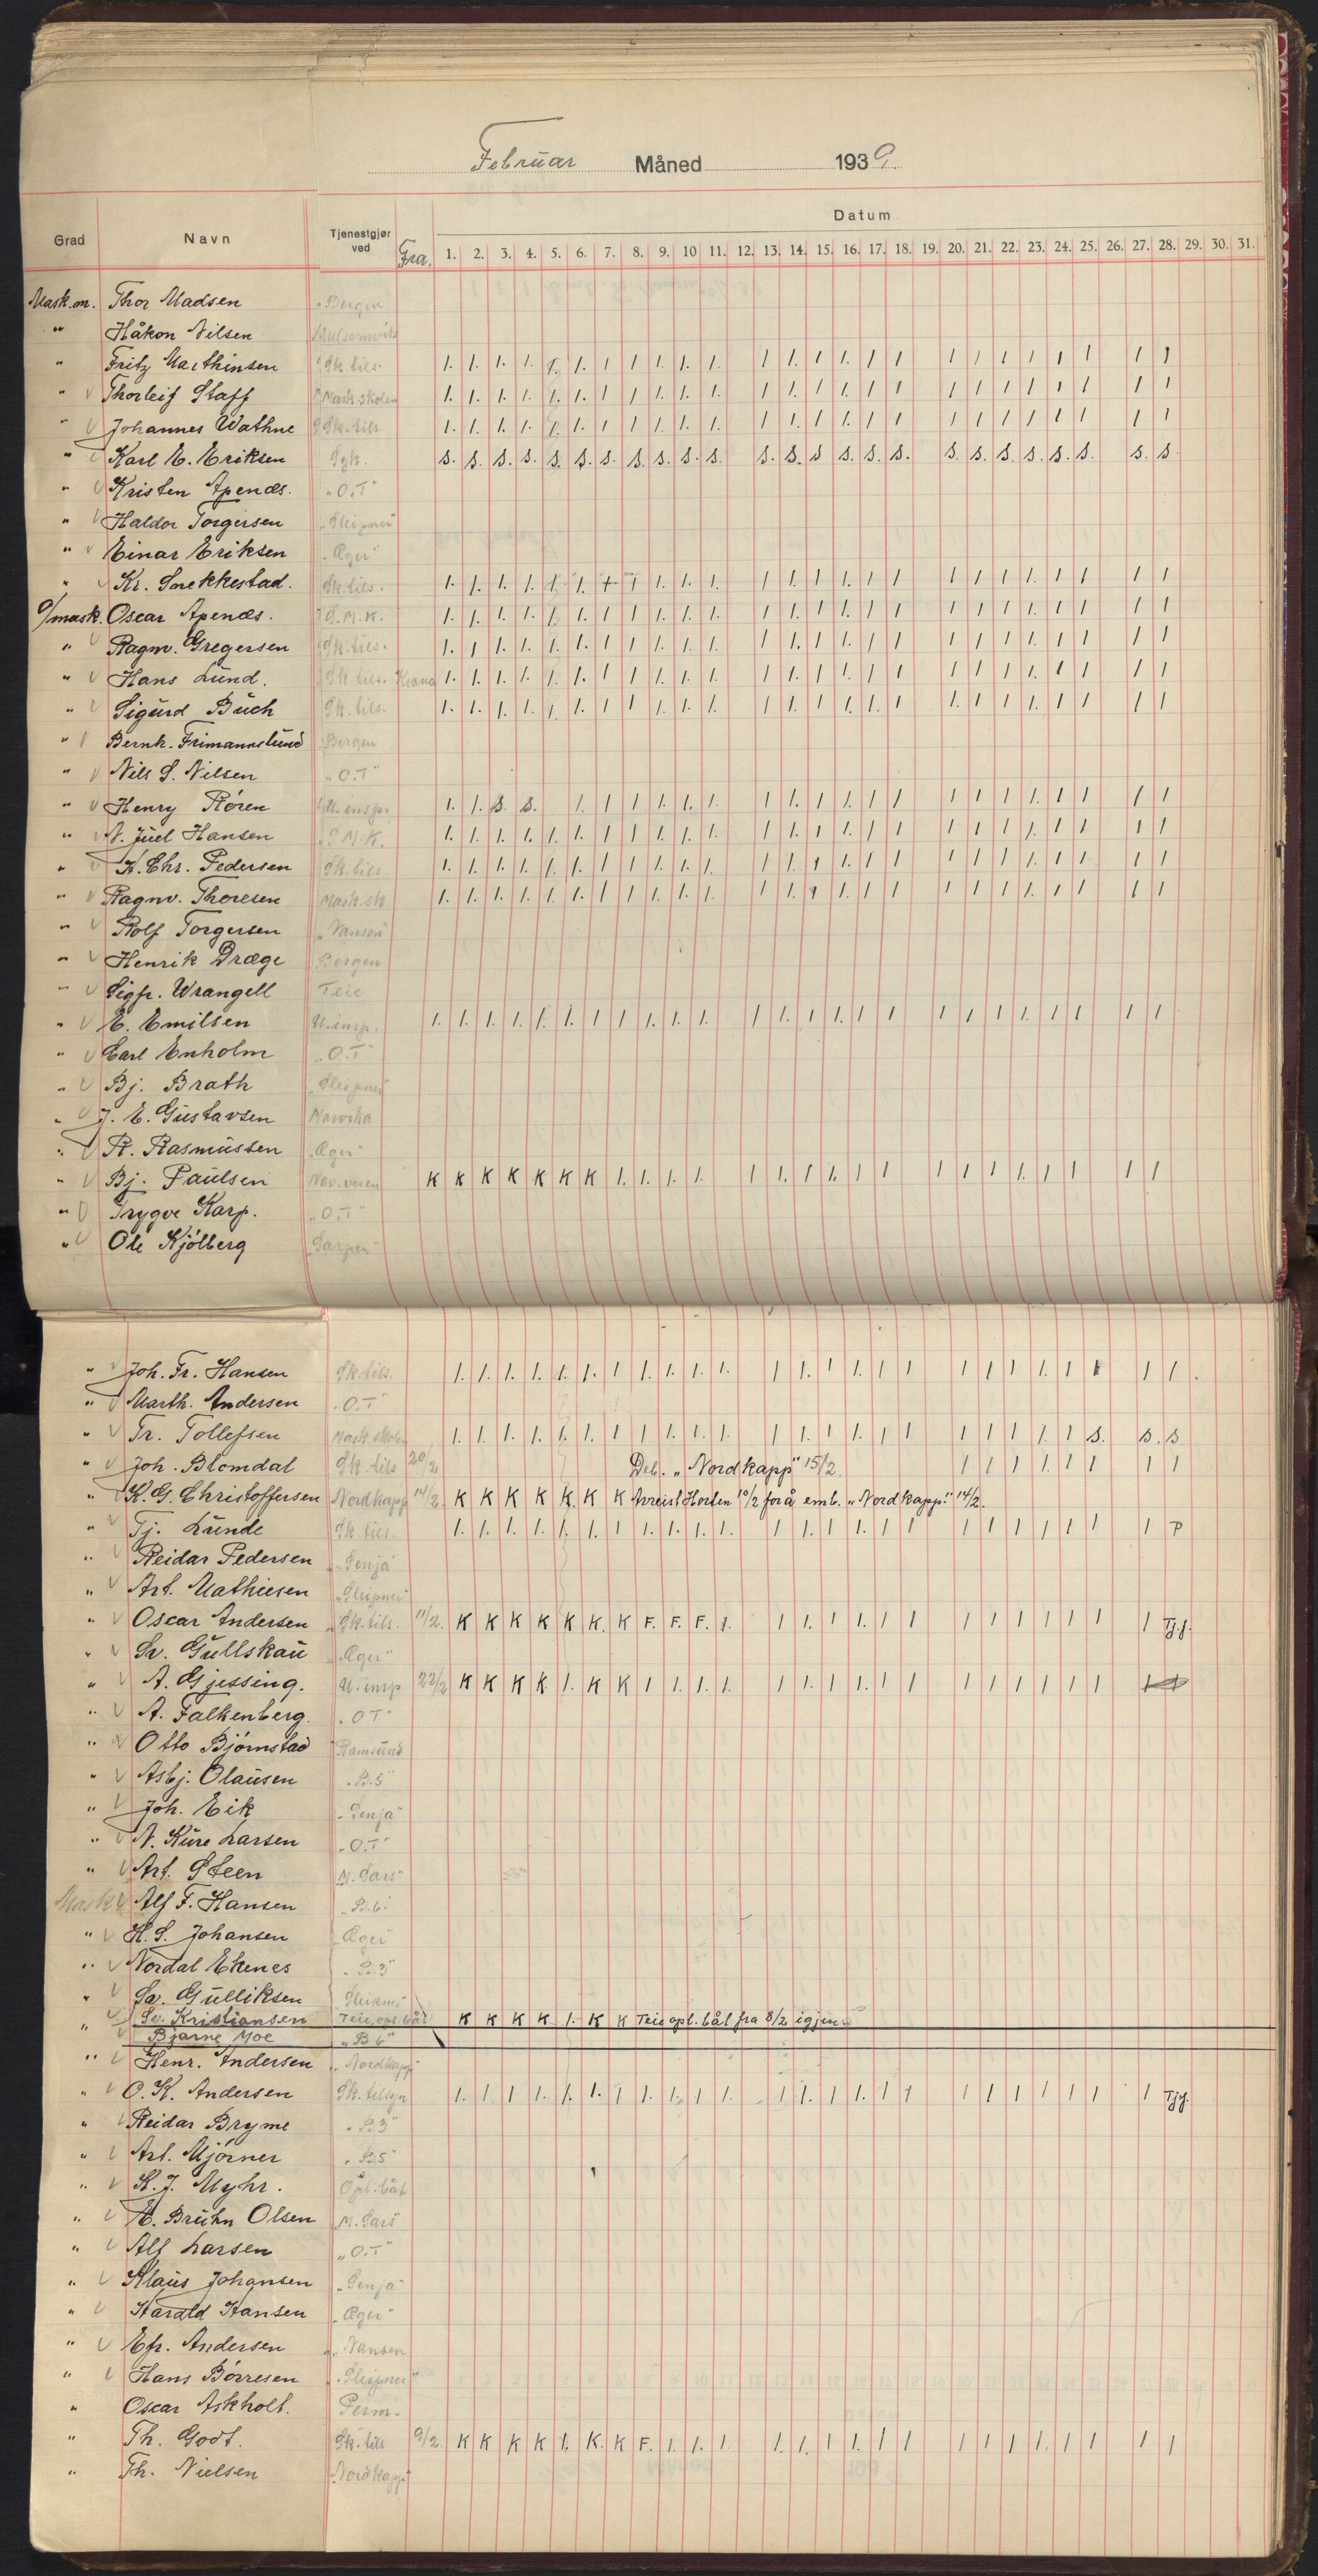 Februar Måned 1939
Datum
Grad Navn Tjenestgjør ved Fra. 1. 2. 3. 4. 5. 6. 7. 8. 9. 10 11. 12. 13. 14. 15. 16. 17. 18. 19. 20. 21. 22. 23. 24. 25. 26. 27. 28. 29. 30. 31.
Mask.m. Thor Madsen Bergen
" Håkon Nilsen
" Fritz Marthinsen Sk.tils. 1. 1. 1. 1. 1. 1. 1 1 1. 1. 1. 1 1. 1 1. 1 1 1 1 1 1 1 1 1 1
" Thorleif Staff Mask.skolen 1. 1. 1. 1. 1. 1. 1 1 1. 1. 1. 1 1. 1 1. 1 1 1 1 1 1 1 1 1 1
" Johannes Wathne Sk.tils. 1. 1. 1. 1. 1. 1. 1 1 1. 1. 1. 1 1. 1 1. 1 1 1 1 1 1 1 1 1 1
" Karl E. Eriksen Syk. S. S. S. S. S. S. S. S. S. S. S. S. S. S S. S. S. S. S. S. S. S. S. S. S.
" Kristen Apenæs. "O.T"
" Haldor Torgersen "Sleipner"
" Einar Eriksen "Æger"
" Kr. Snekkestad. Sk.tils. 1. 1. 1. 1. 1. 1. 1 1 1. 1. 1. 1 1. 1 1. 1 1 1 1 1 1. 1 1 1 1
O/mask. Oscar Apenæs. S.M.K. 1. 1. 1. 1. 1. 1. 1 1 1. 1. 1. 1 1. 1 1. 1 1 1 1 1 1. 1 1 1 1
" Ragnv. Gregersen Sk.tils. 1. 1 1. 1. 1. 1. 1 1 1. 1. 1. 1 1. 1 1. 1 1 1 1 1 1. 1 1 1 1
" Hans Lund. Sk.tils. 1. 1. 1. 1. 1. 1. 1 1 1. 1. 1. 1 1. 1 1. 1 1 1 1 1 1. 1 1 1 1
" Sigurd Buch Sk.tils. 1. 1. 1. 1. 1. 1. 1 1 1. 1. 1. 1 1. 1 1. 1. 1 1. 1 1 1. 1 1 1 1
" Bernh. Frimannslund Bergen
" Nils S. Nilsen "O.T"
" Henry Røren U.insp. 1. 1. S. S. 1. 1 1 1. 1. 1. 1 1. 1 1. 1 1 1 1 1 1. 1 1 1 1
" N. Juel Hansen S.M.K. 1. 1. 1. 1. 1. 1. 1 1 1. 1. 1. 1 1. 1 1. 1 1 1 1 1 1. 1 1 1 1
" H. Chr. Pedersen Sk.tils 1. 1. 1. 1. 1. 1. 1 1 1. 1. 1. 1 1. 1 1. 1 1 1 1 1 1. 1 1 1 1
" Ragnv. Thoresen Mask.sk 1. 1. 1. 1. 1. 1. 1 1 1. 1. 1. 1 1. 1 1. 1 1 1 1 1 1. 1 1 1 1
" Rolf Torgersen "Nansen"
" Henrik Dræge Bergen
" Sigfr. Wrangell Teie
" E. Emilsen U.insp. 1. 1. 1. 1. 1. 1. 1 1 1. 1. 1. 1 1. 1 1. 1 1 1 1 1 1. 1 1 1 1
" Carl Enholm "O.T"
" Bj. Brath "Sleipner"
" J. E. Gustavsen
" R. Rasmussen "Æger"
" Bj. Paulsen Nav.vesen K K K K K K K 1. 1. 1. 1. 1 1. 1 1. 1 1 1 1 1 1. 1 1 1 1
" Trygve Karp. "O.T"
" Ole Kjølberg
" Joh. Fr. Hansen Sk.tils. 1. 1. 1. 1. 1. 1. 1 1. 1. 1. 1. 1 1. 1 1. 1 1 1 1 1 1. 1 1 1 1
" Marth. Andersen "O.T"
" Tr. Tollefsen Mask.skolen 1. 1. 1. 1. 1. 1. 1 1 1. 1. 1. 1 1. 1 1. 1 1 1 1 1 1. 1 S. S. S
" Joh. Blomdal Sk.tils 20/2 Deb. "Nordkapp" 15/2 1 1 1 1. 1 1 1 1
" K. G. Christoffersen Nordkapp 14/2. K K K K K. K K Avreist Horten 10/2 for å emb. "Nordkapp" 14/2.
" Tj. Lunde Sk tils. 1. 1. 1. 1. 1. 1. 1 1. 1. 1. 1. 1 1. 1 1. 1 1 1 1 1 1 1 1 1 P
" Reidar Pedersen "Senja"
" Art. Mathiesen "Sleipner"
" Oscar Andersen Sk.tils. 11/2. K K K K K K. K F. F. F. 1. 1 1. 1 1. 1 1 1 1 1 1 1 1 1 Tj.f.
" Sv. Gullskau "Æger"
" A. Gjessing. U.insp 22/2 K K K K. 1. K K 1 1. 1. 1. 1 1. 1 1. 1 1 1 1 1 1 1 1
" A. Falkenberg. "OT"
" Otto Bjørnstad Ramsund
" Asbj. Olausen "B.5"
" Joh. Eik "Senja"
" N. Kure Larsen "O.T"
" Art. Steen "M. Sars"
Mask Alf F. Hansen "B.6"
" H.S. Johansen "Æger"
" Nordal Ekenes "B.3"
" Sv. Gulliksen "Sleipner"
" Sv. Kristiansen Teie opl.båt K K K K 1. K K Teie opl. båt fra 8/2 igjen
Bjarne Moe "B 6"
" Henr. Andersen "Nordkapp"
" O.K. Andersen Sk.tilsyn 1. 1 1 1. 1. 1. 1 1. 1. 1 1. 1 1. 1 1. 1 1 1 1 1 1 1 1 1 Tjf.
" Reidar Bryme "B3"
" Art. Mjørner "B.5"
" K.J. Myhr. Opl.båt
" H. Bruhn Olsen "M. Sars"
" Alf Larsen "O.T"
" Klaus Johansen "Senja"
" Harald Hansen "Æger"
" Efr. Andersen "Nansen
" Hans Børresen "Sleipner"
" Oscar Askholt. Perm.
" Th. Godt. Sk.tils 9/2. K K K K 1. K. K F. 1. 1. 1. 1. 1. 1 1. 1 1 1 1 1 1. 1 1 1 1
" Th. Nielsen "Nordkapp"